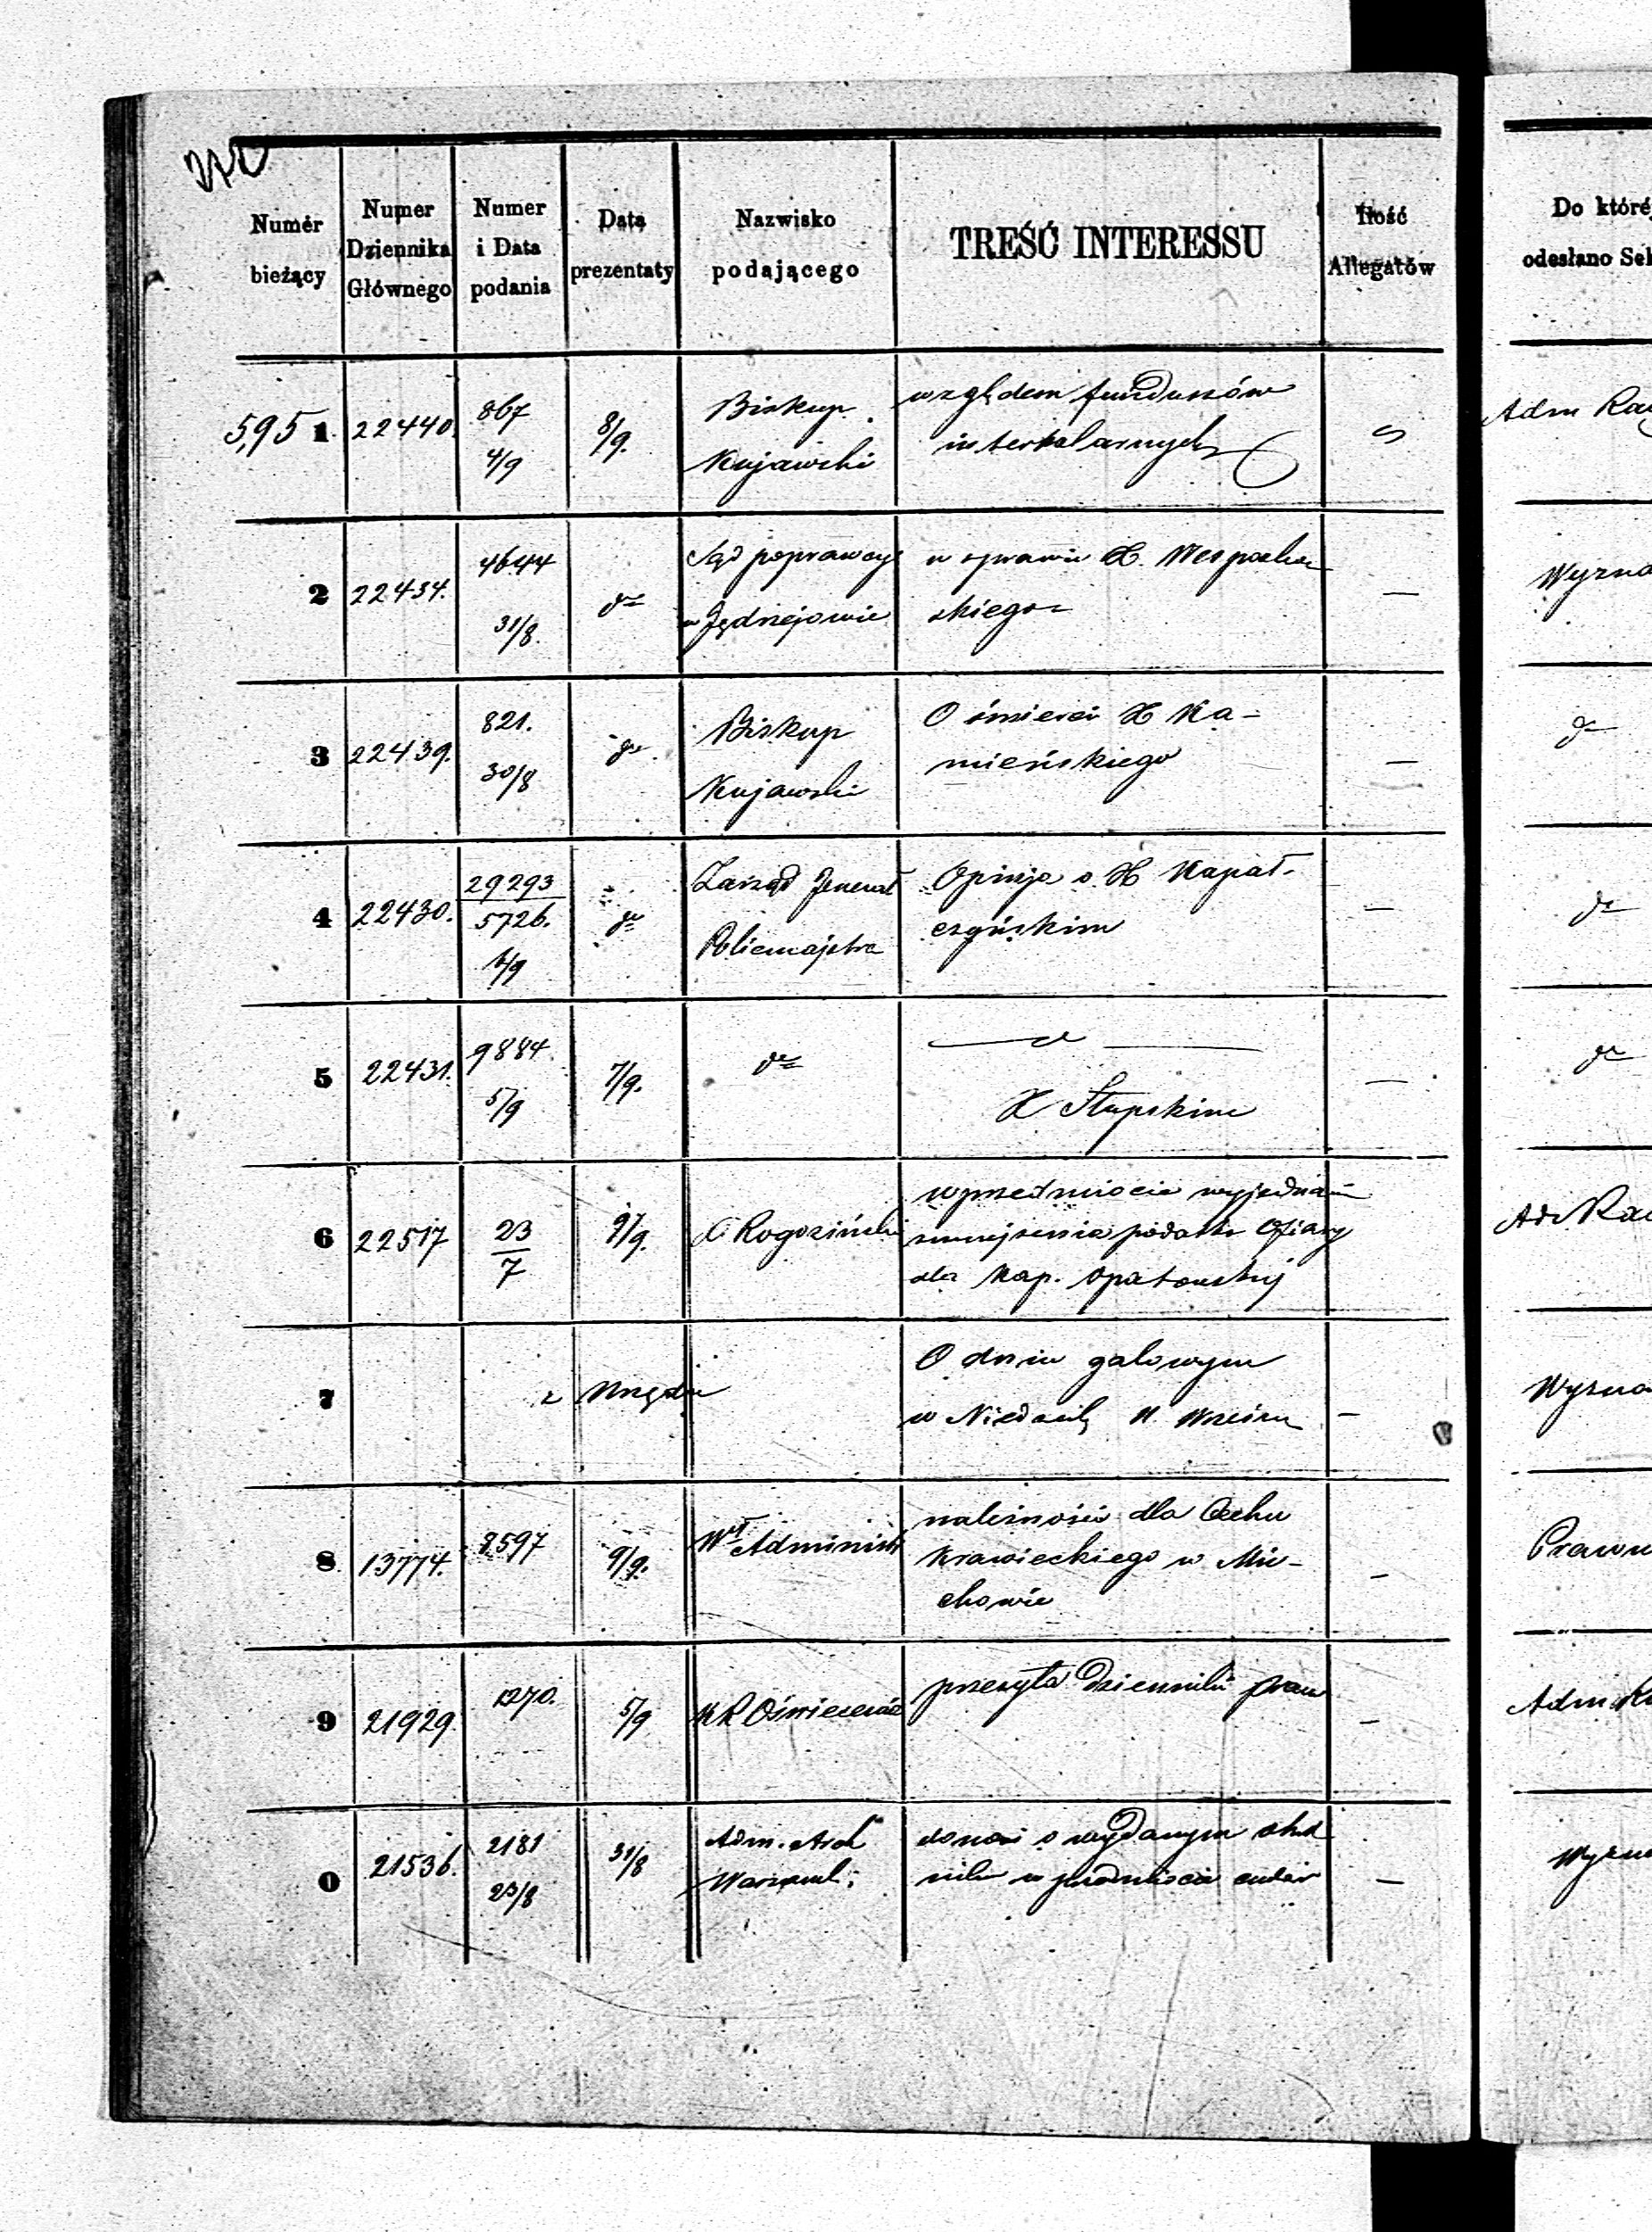 Numer bieżący
Numer Dziennika Głównego
Numer i Data podania
Data prezentaty
Nazwisko podającego
TREŚĆ INTERESSU
Ilość Allegatów
Do które
odesłano Sek
5,951 22440. 867 4/9 8/9. Biskup Kujawski
względem funduszów
interkalarnych
Adm
2 22434. 4644 31/8. do Sąd poprawczy w Jędrzejowie
w sprawie X.
skiego
—
Wyzna
3 22439. 821. 30/8 do Biskup Kujawski
O śmierci X Ka-
mieńskiego
—
do
4 22430. 29293 5726. /9 do Zarząd Jenerał Policmajstra
Opinja o X Kapał-
czyńskim
—
do
5 22431. 9884. 5/9 7/9. do
— do —
X Słupskim
—
do
6 22517 23/7 9/9. X Rogoziński
w przedmiocie wyjednania
zmniejszenia podatku Ofiary
dla Kap. Opatowskiej
7 z Urzędu
O dniu galowym
w Niedzielę 11. Wrześn
—
Wyzna
8 13774. 8597 9/9. Wł Administr
należności dla Cechu
Krawieckiego w Mie-
chowie
—
Prawn
9 21929. 1270. 5/9 KR Oświecenia
przesyła Dzienniki praw
—
Adm.
0 21536. 2181 23/8 31/8 Adm. Arch Warszawski
donosi o wydanym okól
niku w przedmiocie
—